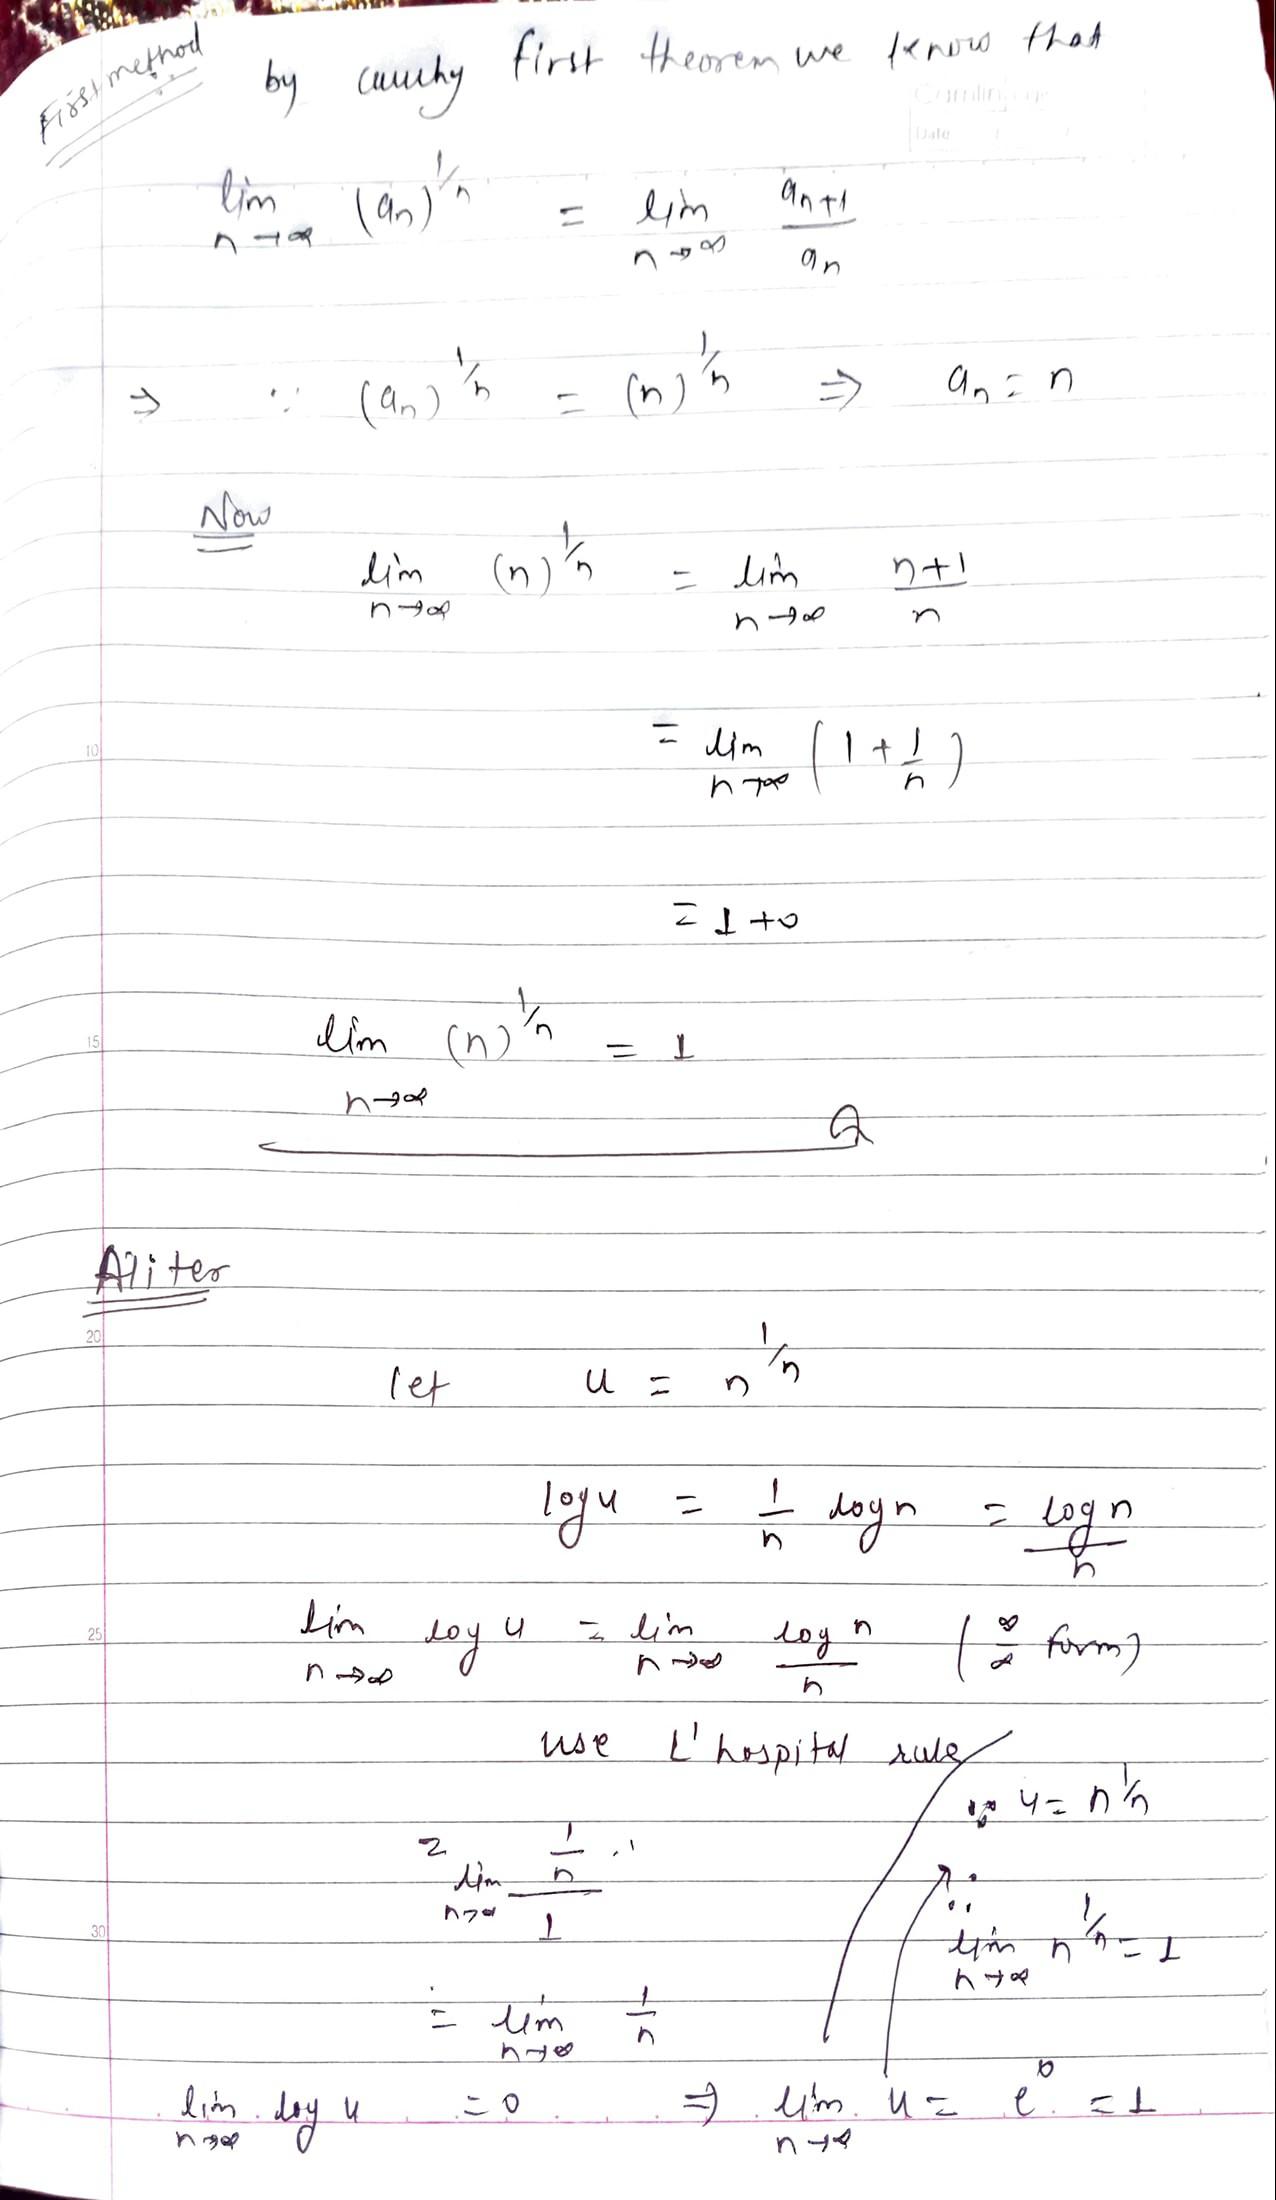 First method
by cauchy first theorem we know that
Date
lim n→∞ (aₙ)^1/n = lim n→∞ aₙ₊₁/aₙ
⇒ ∵ (aₙ)^1/n = (n)^1/n ⇒ aₙ = n
Now
lim n→∞ (n)^1/n = lim n→∞ n+1/n
= lim n→∞ (1 + 1/n)
10
= 1 + 0
15 lim n→∞ (n)^1/n = 1
Aliter
20
let u = n^1/n
log u = 1/n log n = log n/n
25 lim n→∞ log u = lim n→∞ log n/n (∞/∞ form)
use L' hospital rule
= lim n→∞ (1/n)/1
30
= lim n→∞ 1/n
lim n→∞ log u = 0 ⇒ lim n→∞ u = e^0 = 1
∵ u = n^1/n
∴ lim n→∞ n^1/n = 1